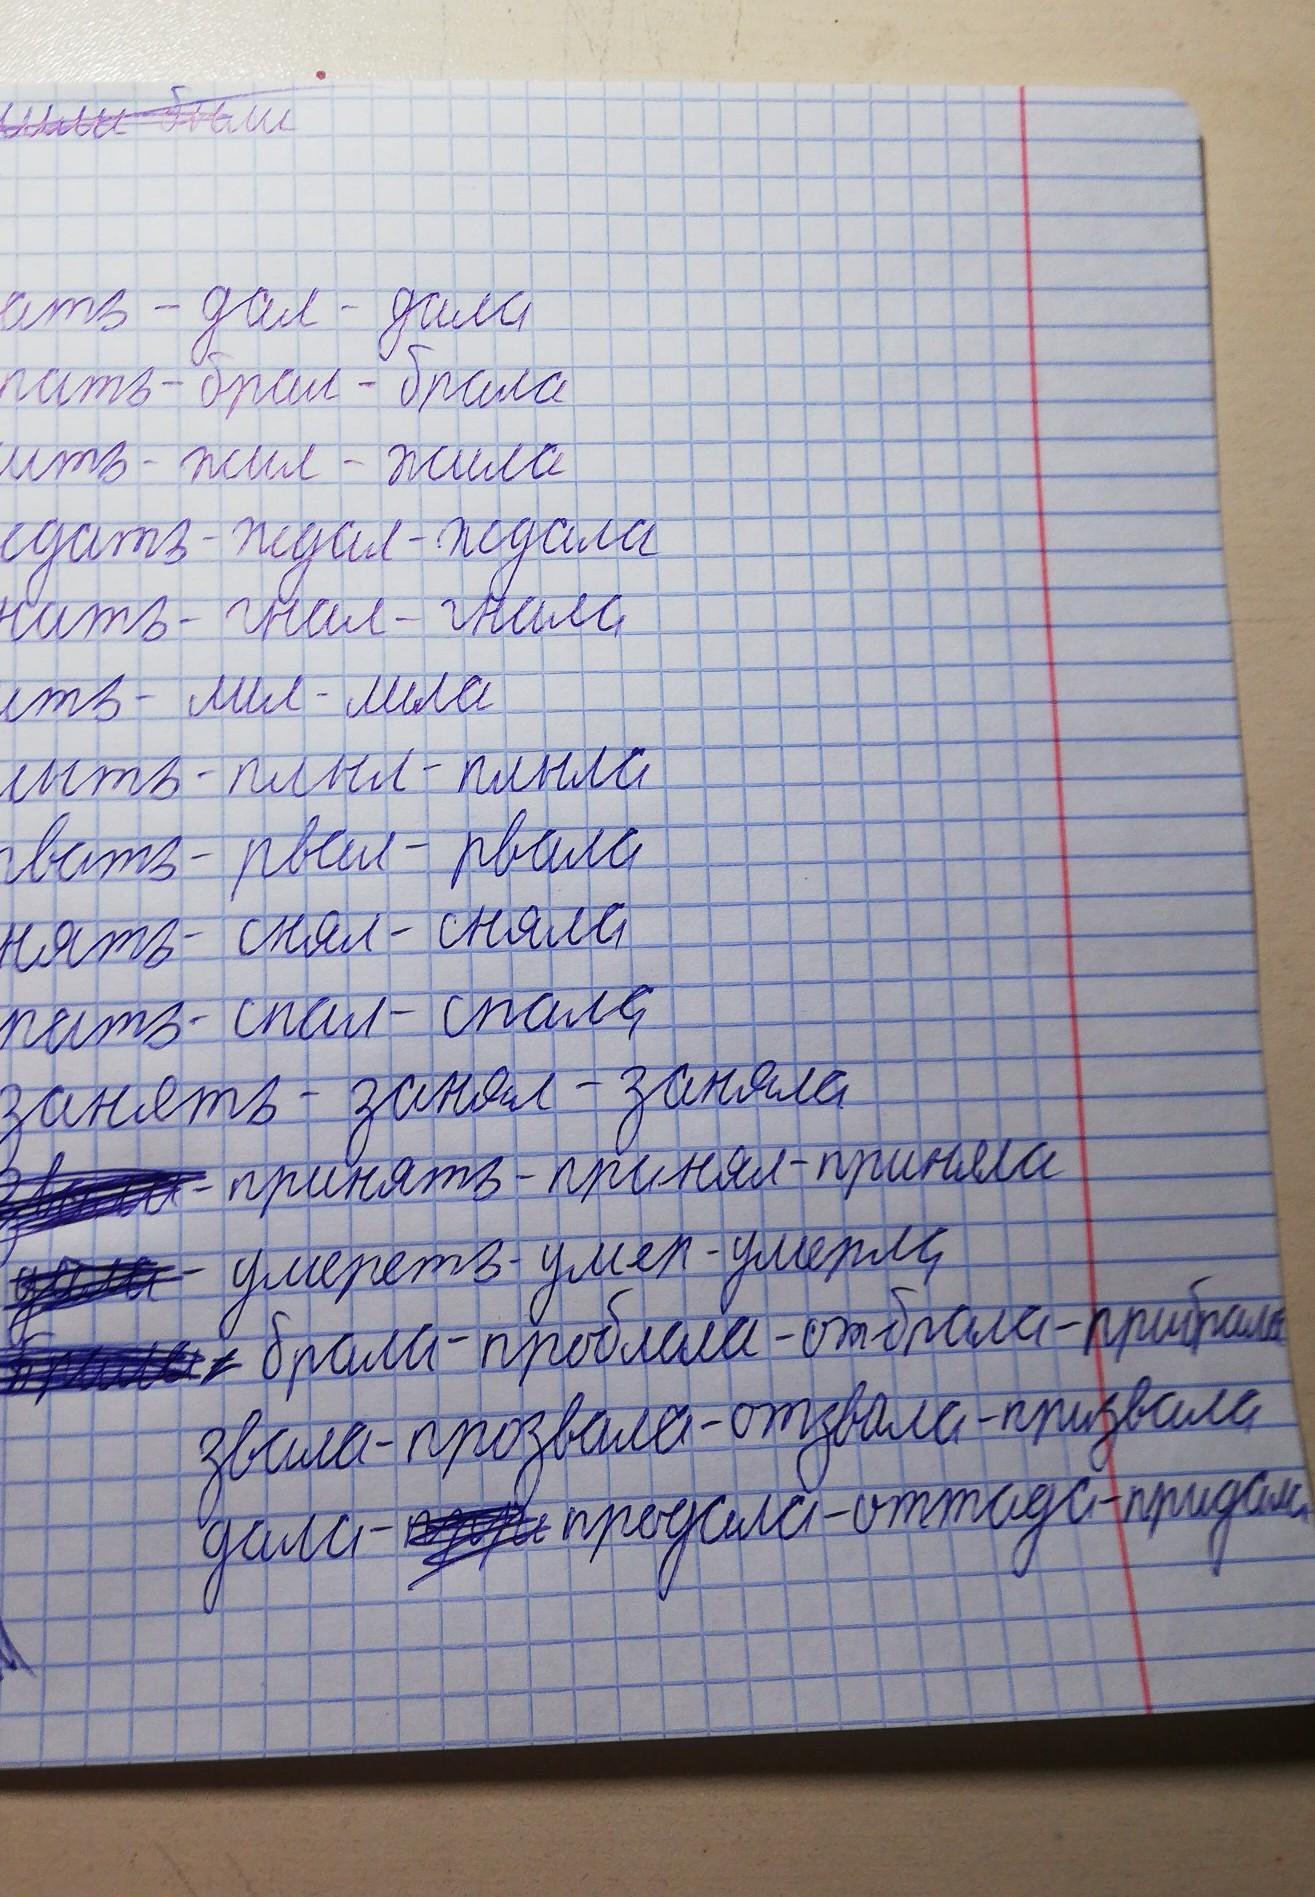 были
ать - дал - дала
рать - брал - брала
ить - жил - жила
ждать - ждал - ждала
нать - гнал - гнала
ить - лил - лила
лыть - плыл - плыла
рвать - рвал - рвала
нять - снял - сняла
пать - спал - спала
занять - занял - заняла
- принять - принял - приняла
- умереть - умер - умерла
- брала - проблала - отбрала - прибрала
звала - прозвала - отзвала - призвала
дала - продала - оттада - придала